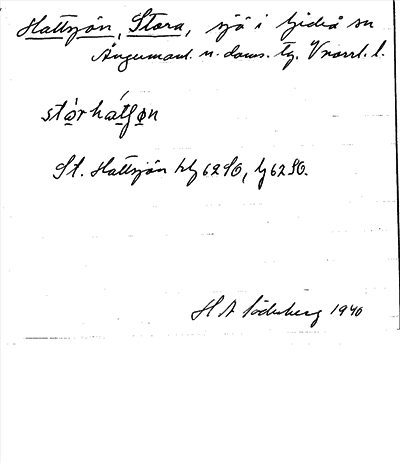 Hattsjön, Stora, sjö i Gideå sn
Ångermanl. n. doms. tg. Vnorrl. l.
stórhátʃøn
St. Hattsjön hfl 62SO, lfl 62SO.
H A Söderberg 1940